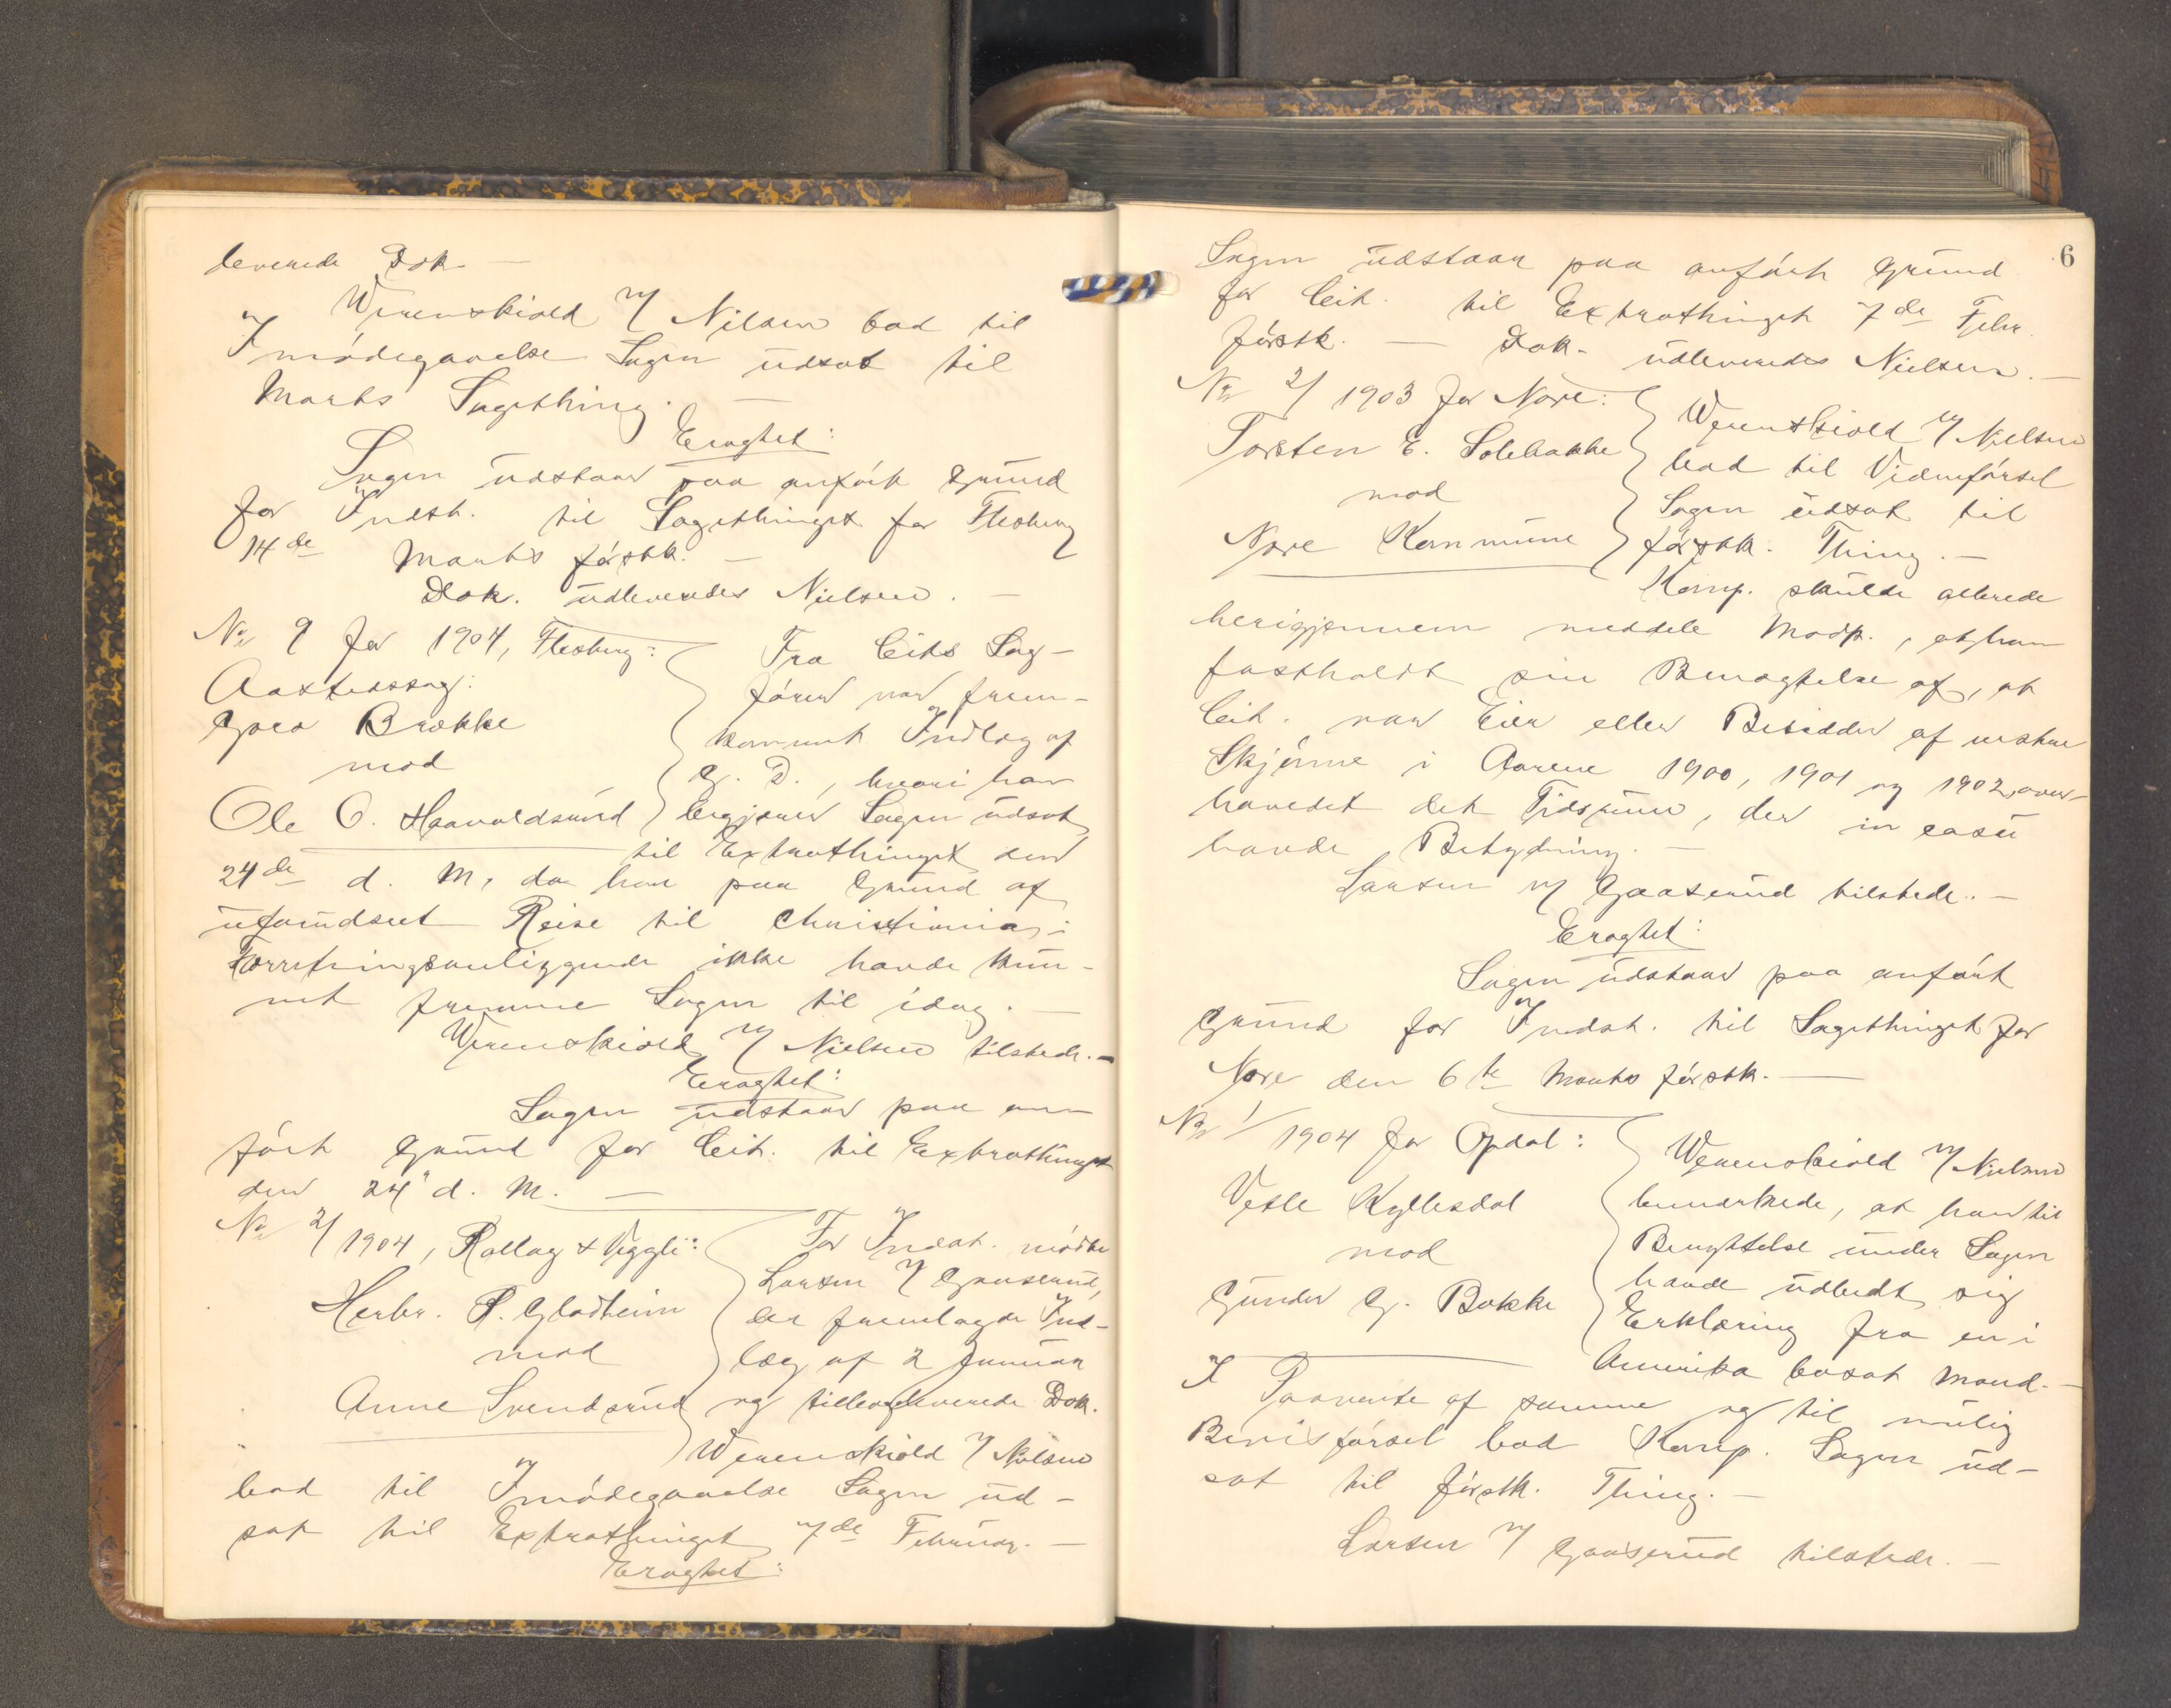 leverede Dok. —
Werenskiold v/ Nilsen bad til
Imødegaaelse Sagen udsat til
Marts Sagething. —
Eragtet:
Sagen udstaar paa anført Grund
for Indst. til Sagethinget for Flesberg
14de Marts førstk. —
Dok. udleveredes Nielsen. —
No 9 for 1904, Flesberg:
Aastedssag:
Goro Brække
mod
Ole O. Haavaldsrud
Fra Cits Sag-
fører var frem-
kommet Indlæg af
G. D., hvori han
begjærer Sagen udsat
til Extrathinget den
24de d. M., da han paa Grund af
uforudseet Reise til Christiania i
Forretningsanliggende ikke havde kun-
net fremme Sagen til idag. —
Werenskiold v/ Nielsen tilstede. —
Eragtet:
Sagen udstaar paa an-
ført Grund for Cit. til Extrathinget
den 24" d. M. —
No 2/1904, Rollag & Veggli:
Herbr. P. Gladheim
mod
Anne Svendsrud
For Indst. mødte
Larsen v/ Gaaserud,
der fremlagde Ind-
læg af 2 Januar
og tilbageleverede Dok.
Werenskiold v/ Nilsen
bad til Imødegaaelse Sagen ud-
sat til Extrathinget 7de Februar. —
Eragtet:
6
Sagen udstaar paa anført Grund
for Cit. til Extrathinget 7de Febr.
førstk. — Dok. udleveredes Nielsen. —
No 2/1903 for Nore:
Torsten E. Solebakke
mod
Nore Kommune
Werenskiold v/ Nielsen
bad til Vidneførsel
Sagen udsat til
førstk. Thing. —
Komp. skulde allerede
herigjennem meddele Modp., at han
fastholdt sin Benægtelse af, at
Cit. var Eier eller Besidder af vestre
Skjønne i Aarene 1900, 1901 og 1902, over-
hovedet det Tidsrum, der in casu
havde Betydning. —
Larsen v/ Gaaserud tilstede. —
Eragtet:
Sagen udstaar paa anført
Grund for Indst. til Sagethinget for
Nore den 6te Marts førstk. —
No 1/1904 for Opdal:
Vetle Kyllesdal
mod
Gunder G. Bakke
Werenskiold v/ Nielsen
bemærkede, at han til
Benyttelse under Sagen
havde udbedt sig
Erklæring fra en i
Amerika bosat Mand. —
I Paavente af samme og til mulig
Bevisførsel bad Komp. Sagen ud-
sat til førstk. Thing. —
Larsen v/ Gaaserud tilstede. —